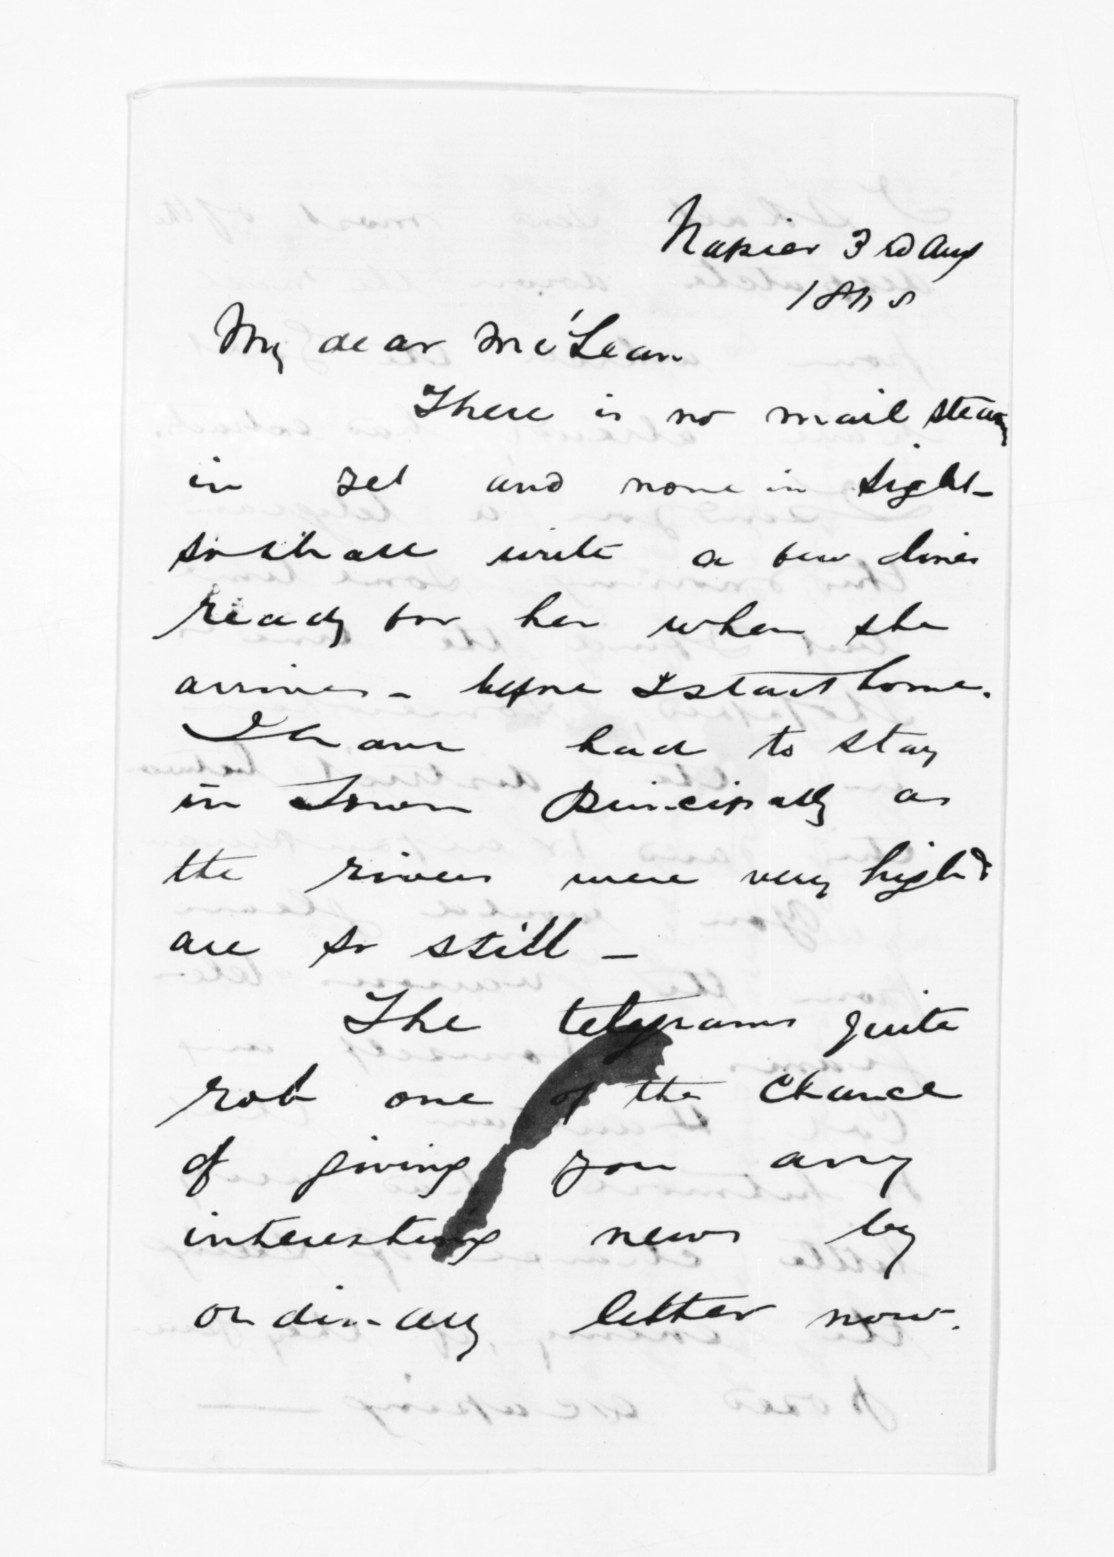 Napier 3rd Aug
My dear McLean
There is no mail steam
in yet and none in sight -
so shall write a few lines
ready for her when she
arrives - before I start home.
I have had to stay
in Town principally as
the rivers were very high &
are so still -
The telegrams quite
rob one of the chance
of giving you any
interesting news by
ordinary letter now.